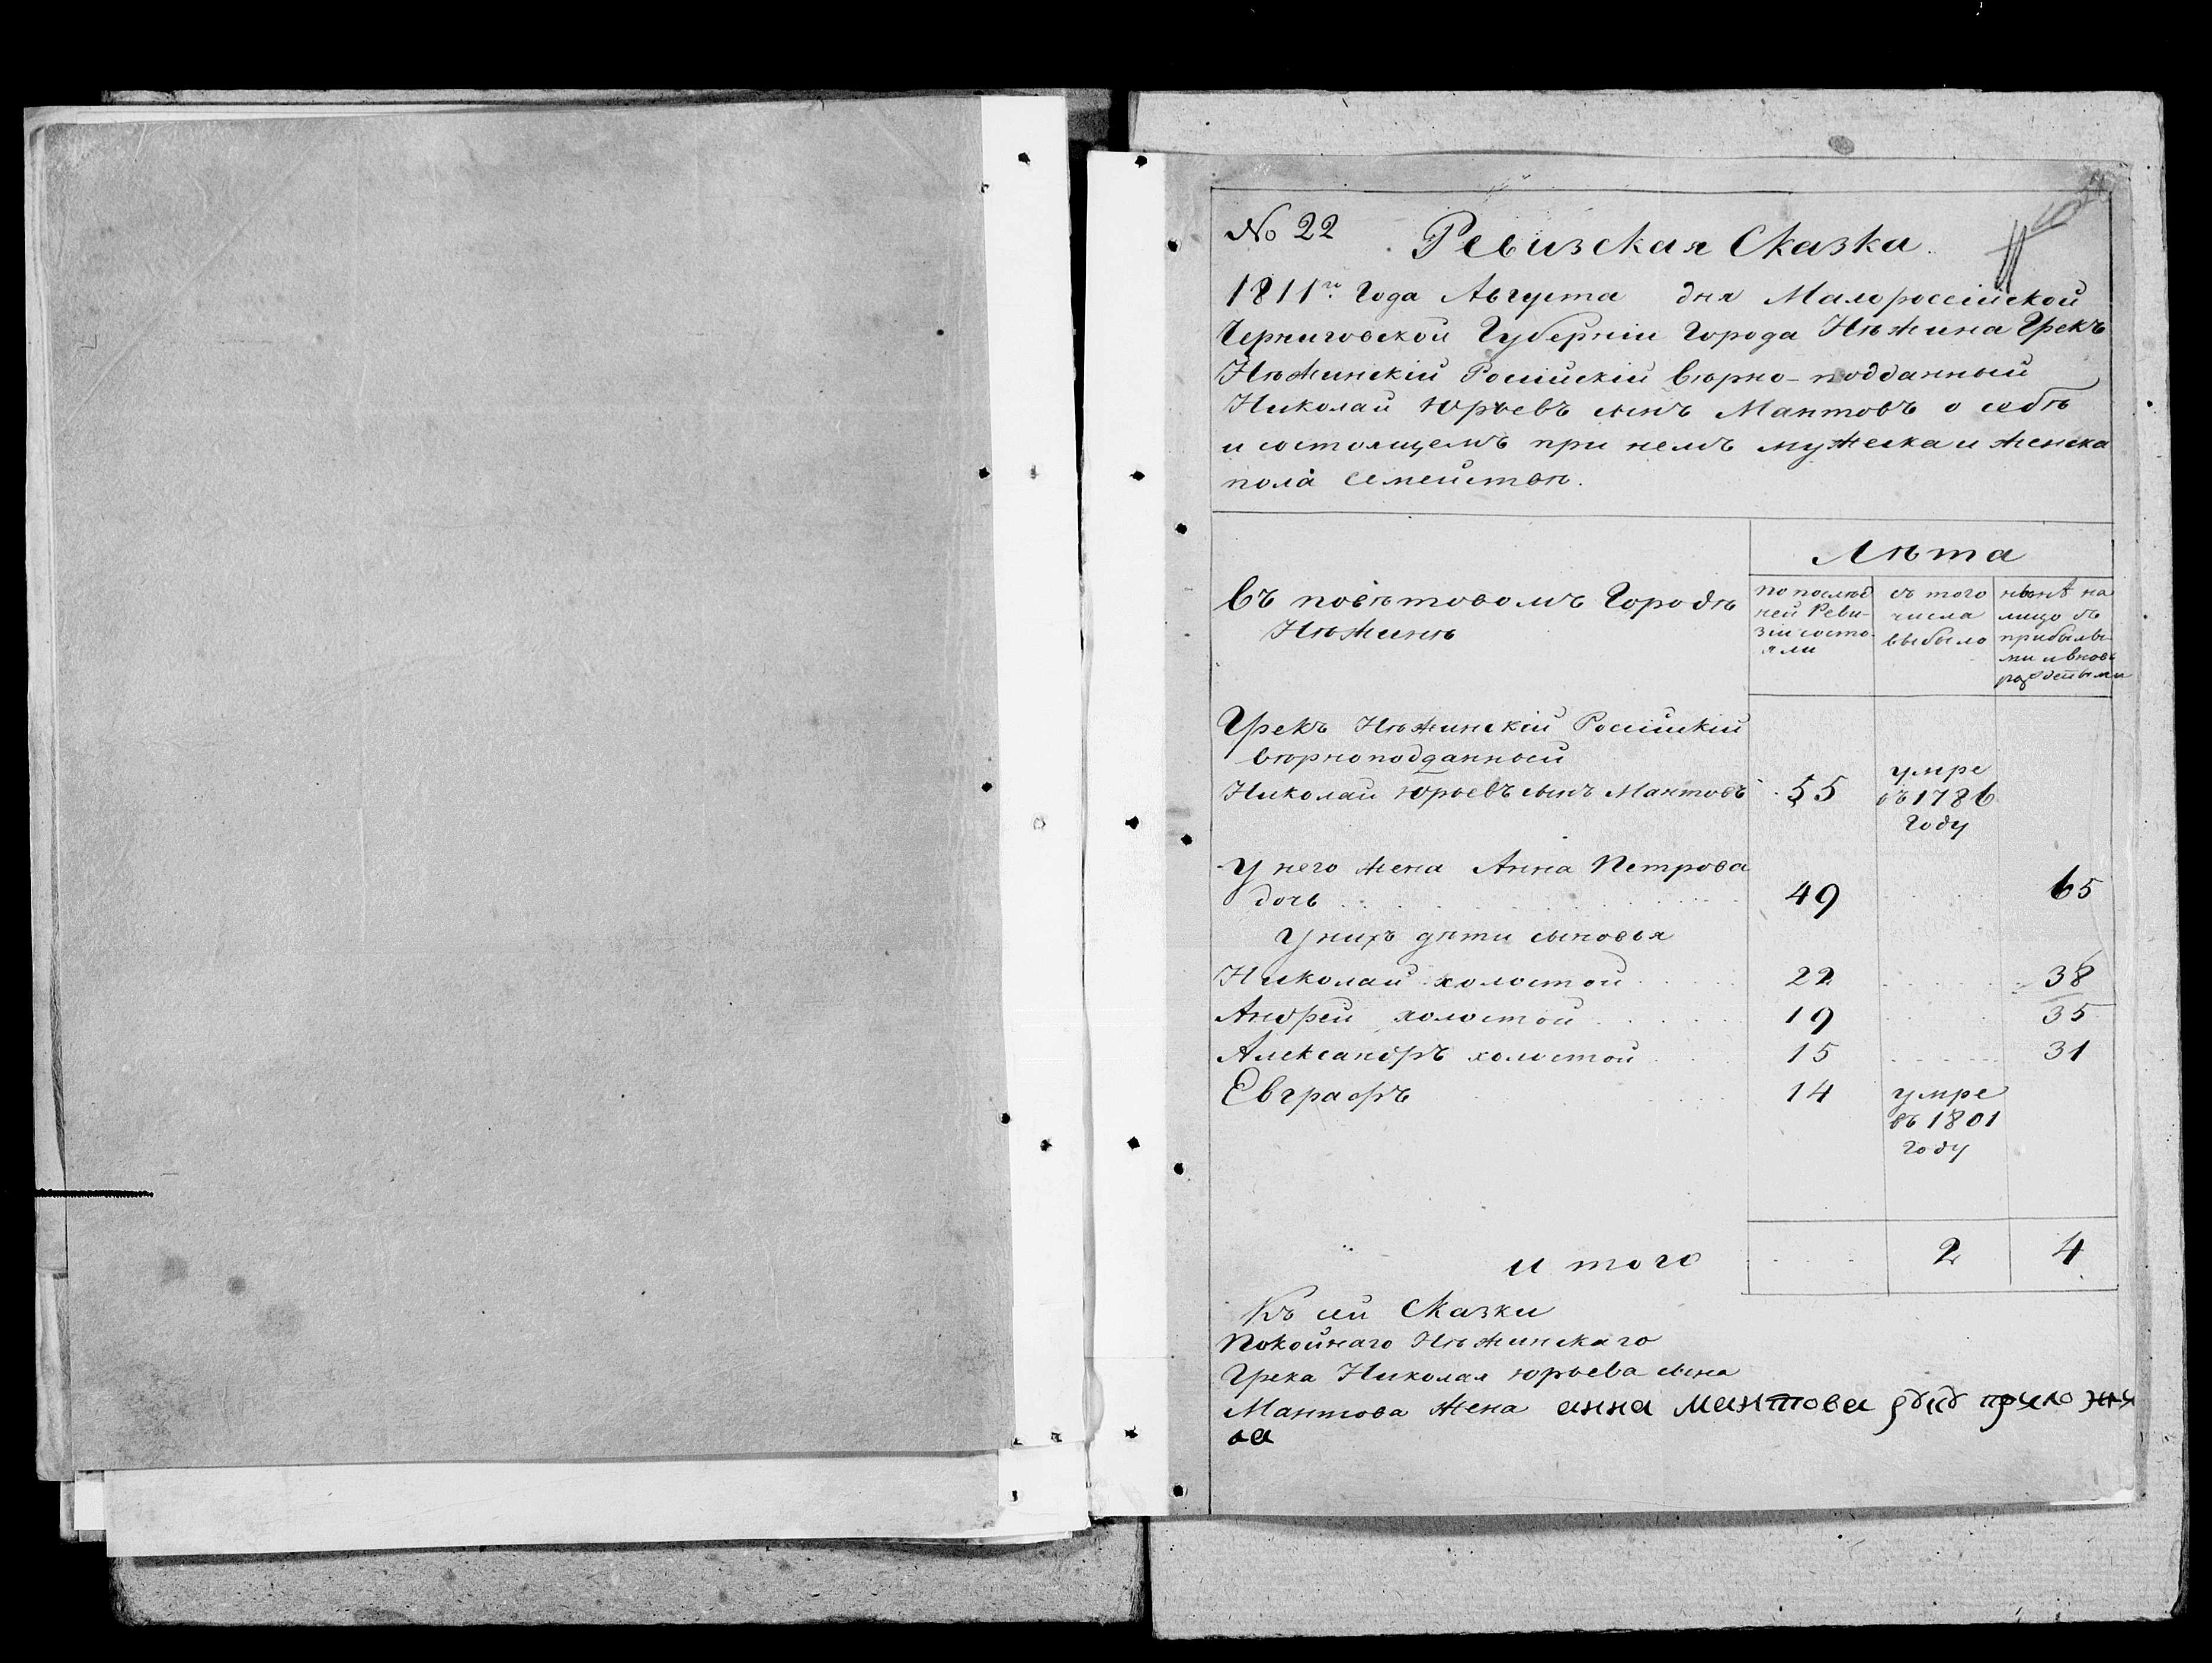 № 22 Ревизская Сказка
1811го Года Августа дня Малороссійской
Черниговской Губерніи Города Нѣжина Грекъ
Нѣжинскій Россійскій вѣрно-подданный
Николай Юрьевъ сынъ Мантовъ о себѣ
и состоящемъ при немъ мужеска и женска
пола семействѣ.
Лѣта
въ повѣтовомъ Городѣ
Нѣжинѣ
по послѣд
ней Реви-
зіи состо-
яли
съ того
числа
выбыло
нынѣ на
лицо съ
прибылы-
ми и вновь
рожденными
Грекъ Нѣжинскій Россійскій
вѣрноподданный
Николай Юрьевъ сынъ Мантовъ 55 умре
въ 1786
Году
У него жена Анна Петрова
дочь 49 65
У нихъ дѣти сыновья
Николай холостой 22 38
Андрей холостой 19 35
Александръ холостой 15 31
Евграфъ 14 умре
въ 1801
Году
и того 2 4
Къ сей Сказки
Покойнаго Нѣжинскаго
Грека Николая Юрьева сына
Мантова жена анна мантова руку приложи
ла